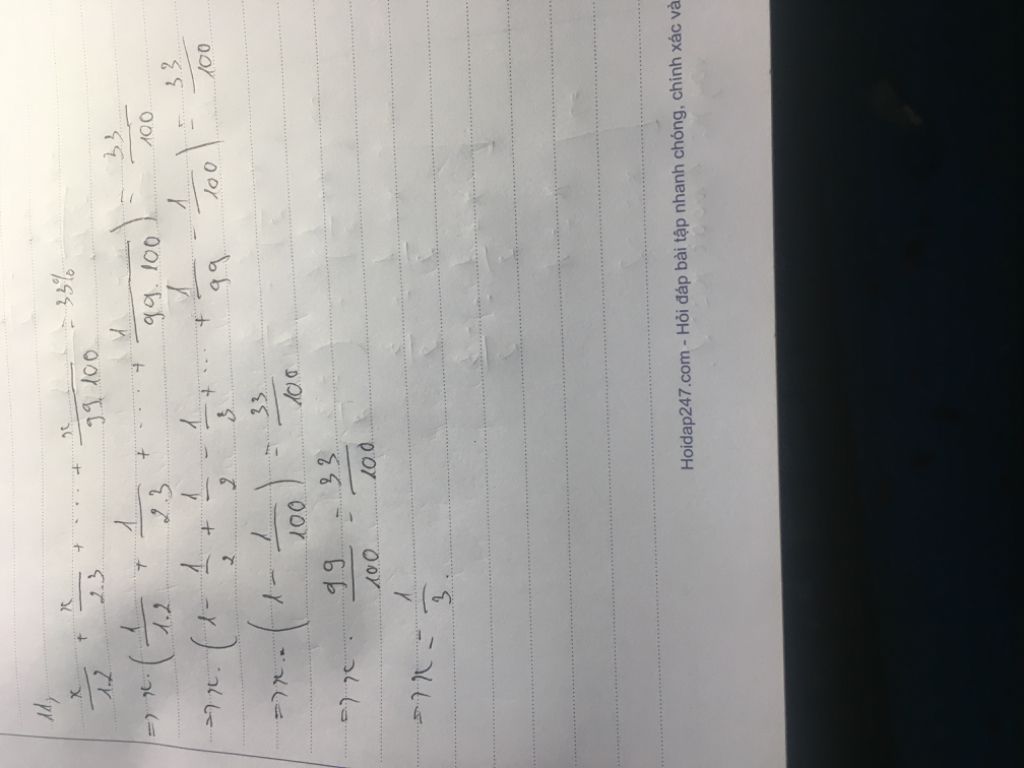 11,
x/1.2 + x/2.3 + .... + x/99.100 = 33%
=> x. (1/1.2 + 1/2.3 + .... + 1/99.100) = 33/100
=> x. (1 - 1/2 + 1/2 - 1/3 + ... + 1/99 - 1/100) = 33/100
=> x. (1 - 1/100) = 33/100
=> x. 99/100 = 33/100
=> x = 1/3.
Hoidap247.com - Hỏi đáp bài tập nhanh chóng, chính xác và